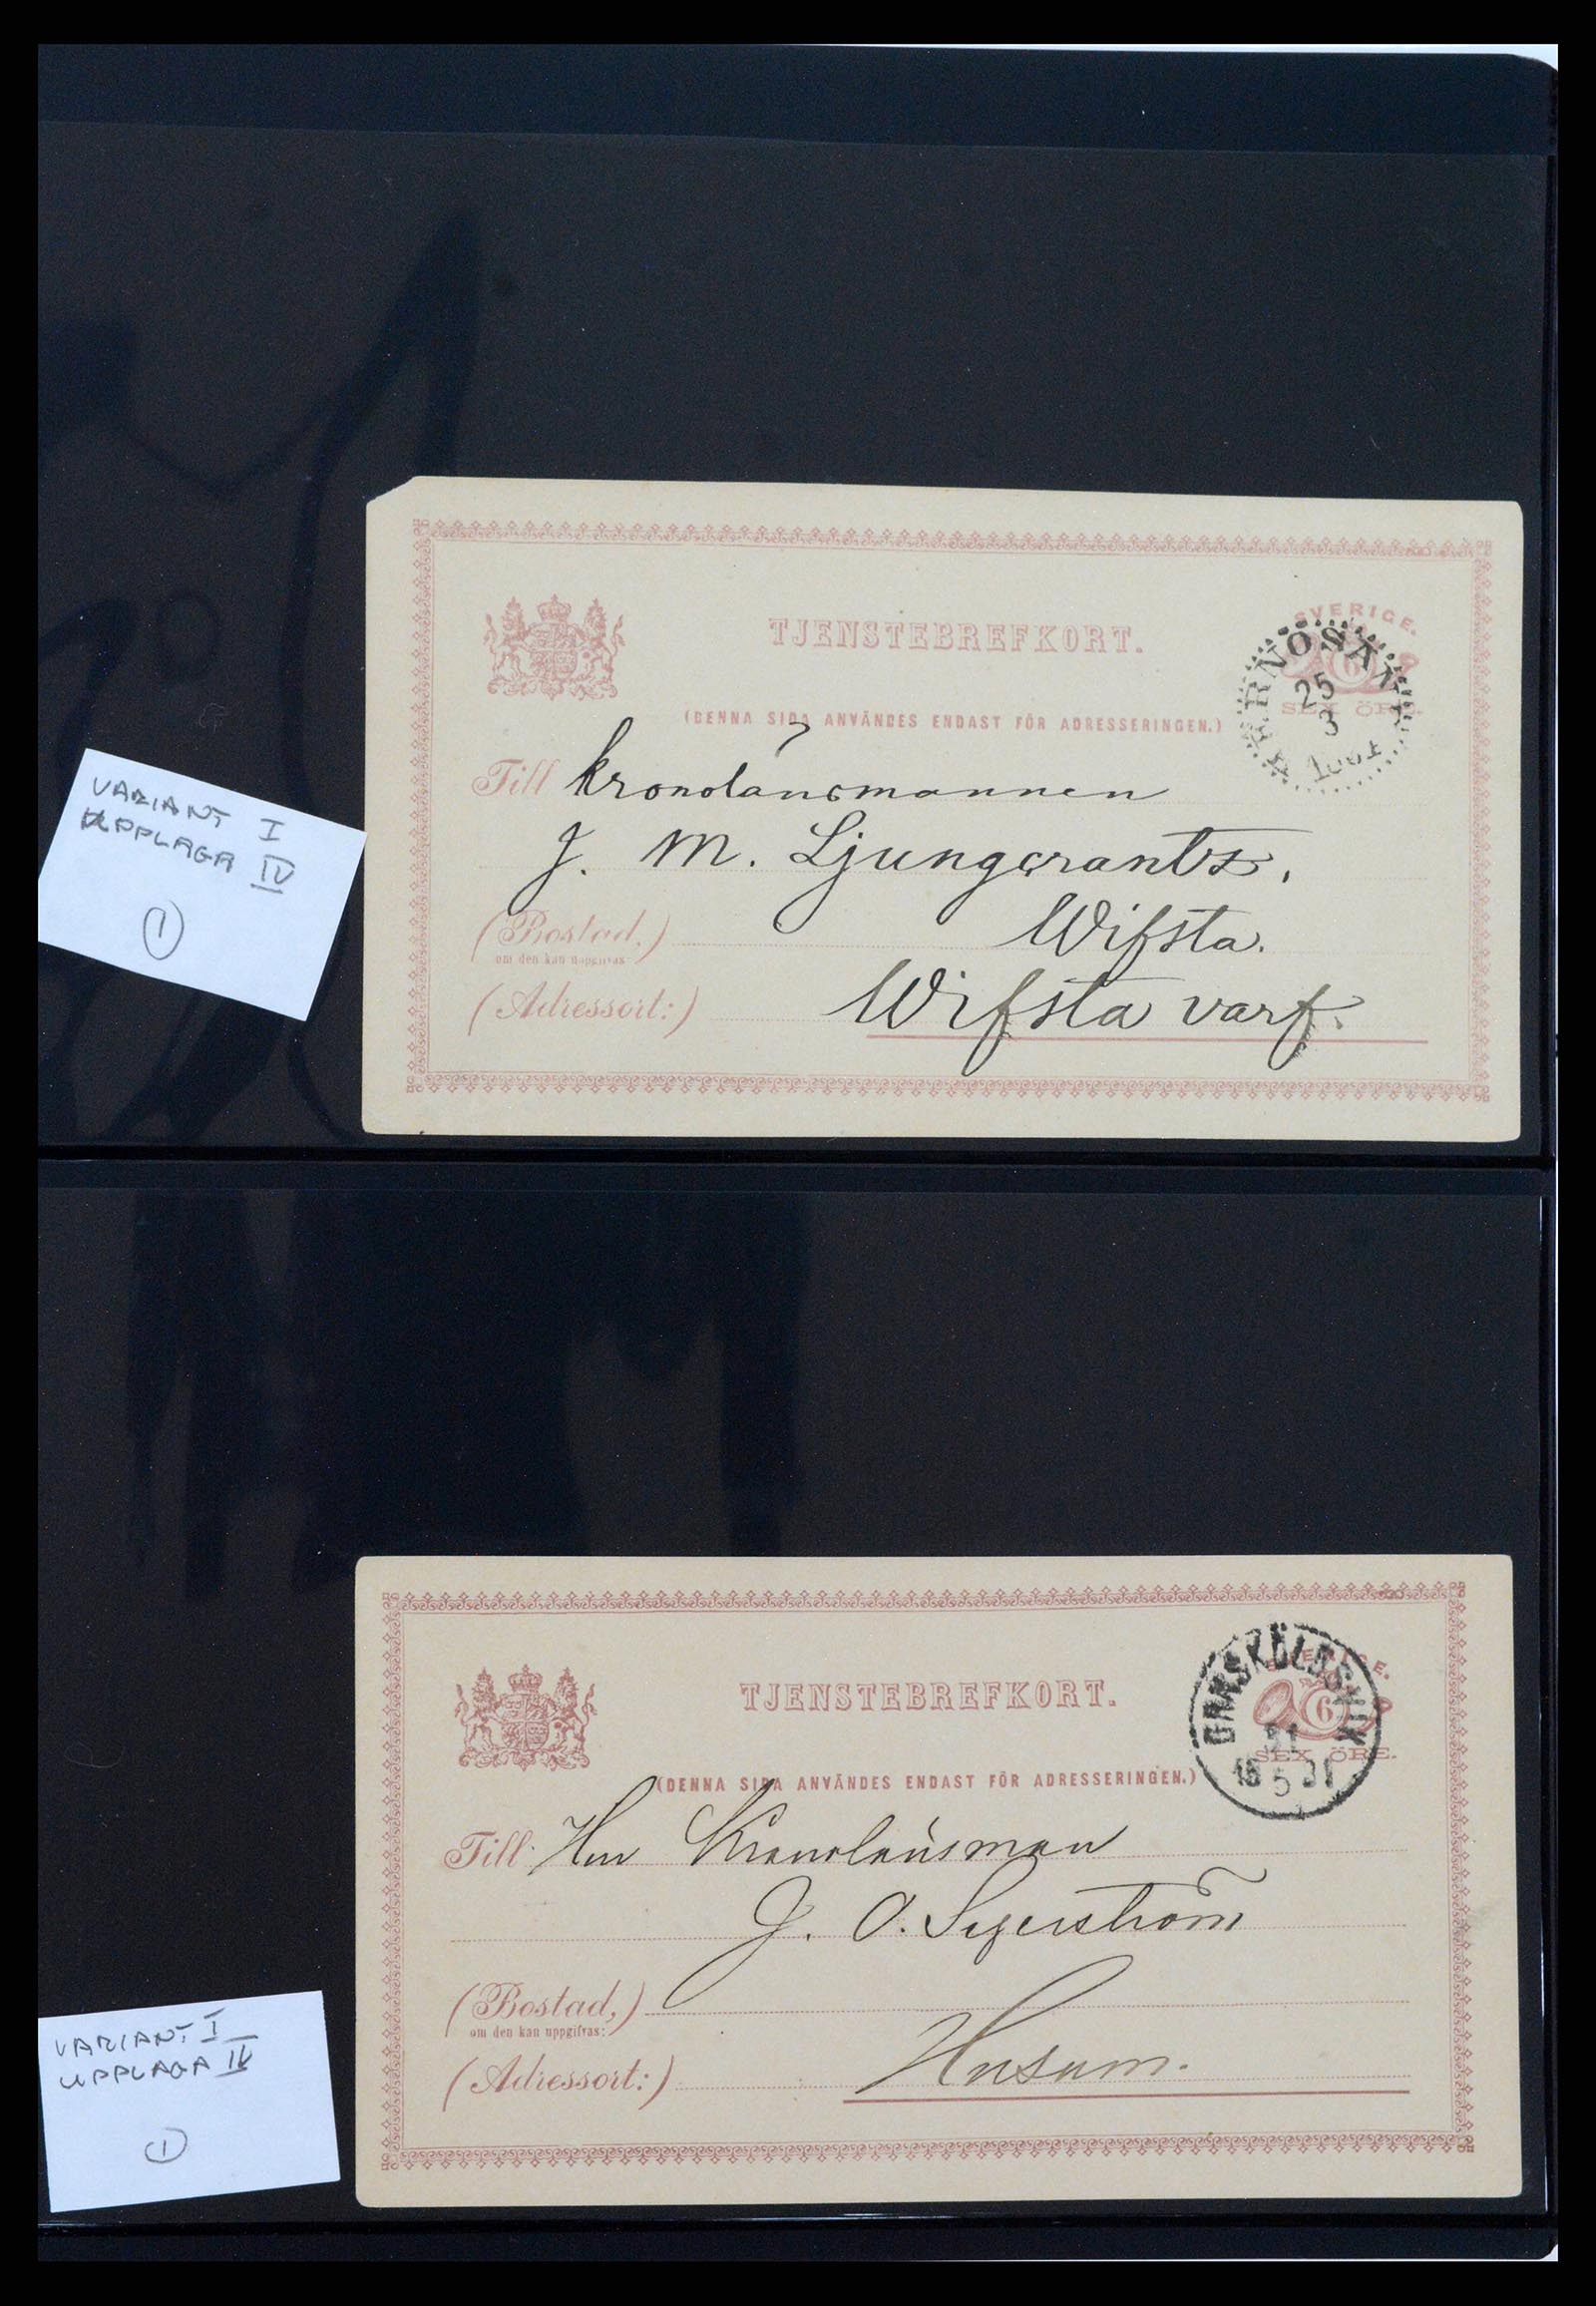 TJENSTEBREFKORT.
SVERIGE.
6
SEX ÖRE.
HERNÖSAND
25
3
(DENNA SIDA ANVÄNDES ENDAST FÖR ADRESSERINGEN.)
Till Kronolänsmannen
J. M. Ljungcrantz,
(Bostad,) Wifsta.
om den kan uppgifvas
(Adressort:) Wifsta varf.
VARIANT I
UPPLAGA IV
1
TJENSTEBREFKORT.
SVERIGE.
6
SEX ÖRE.
ÖRNSKÖLDSVIK
(DENNA SIDA ANVÄNDES ENDAST FÖR ADRESSERINGEN.)
Till: Hrr Kronolänsman
J. O. Segerström
(Bostad,)
om den kan uppgifvas:
(Adressort:) Husum.
VARIANT I
UPPLAGA IV
1